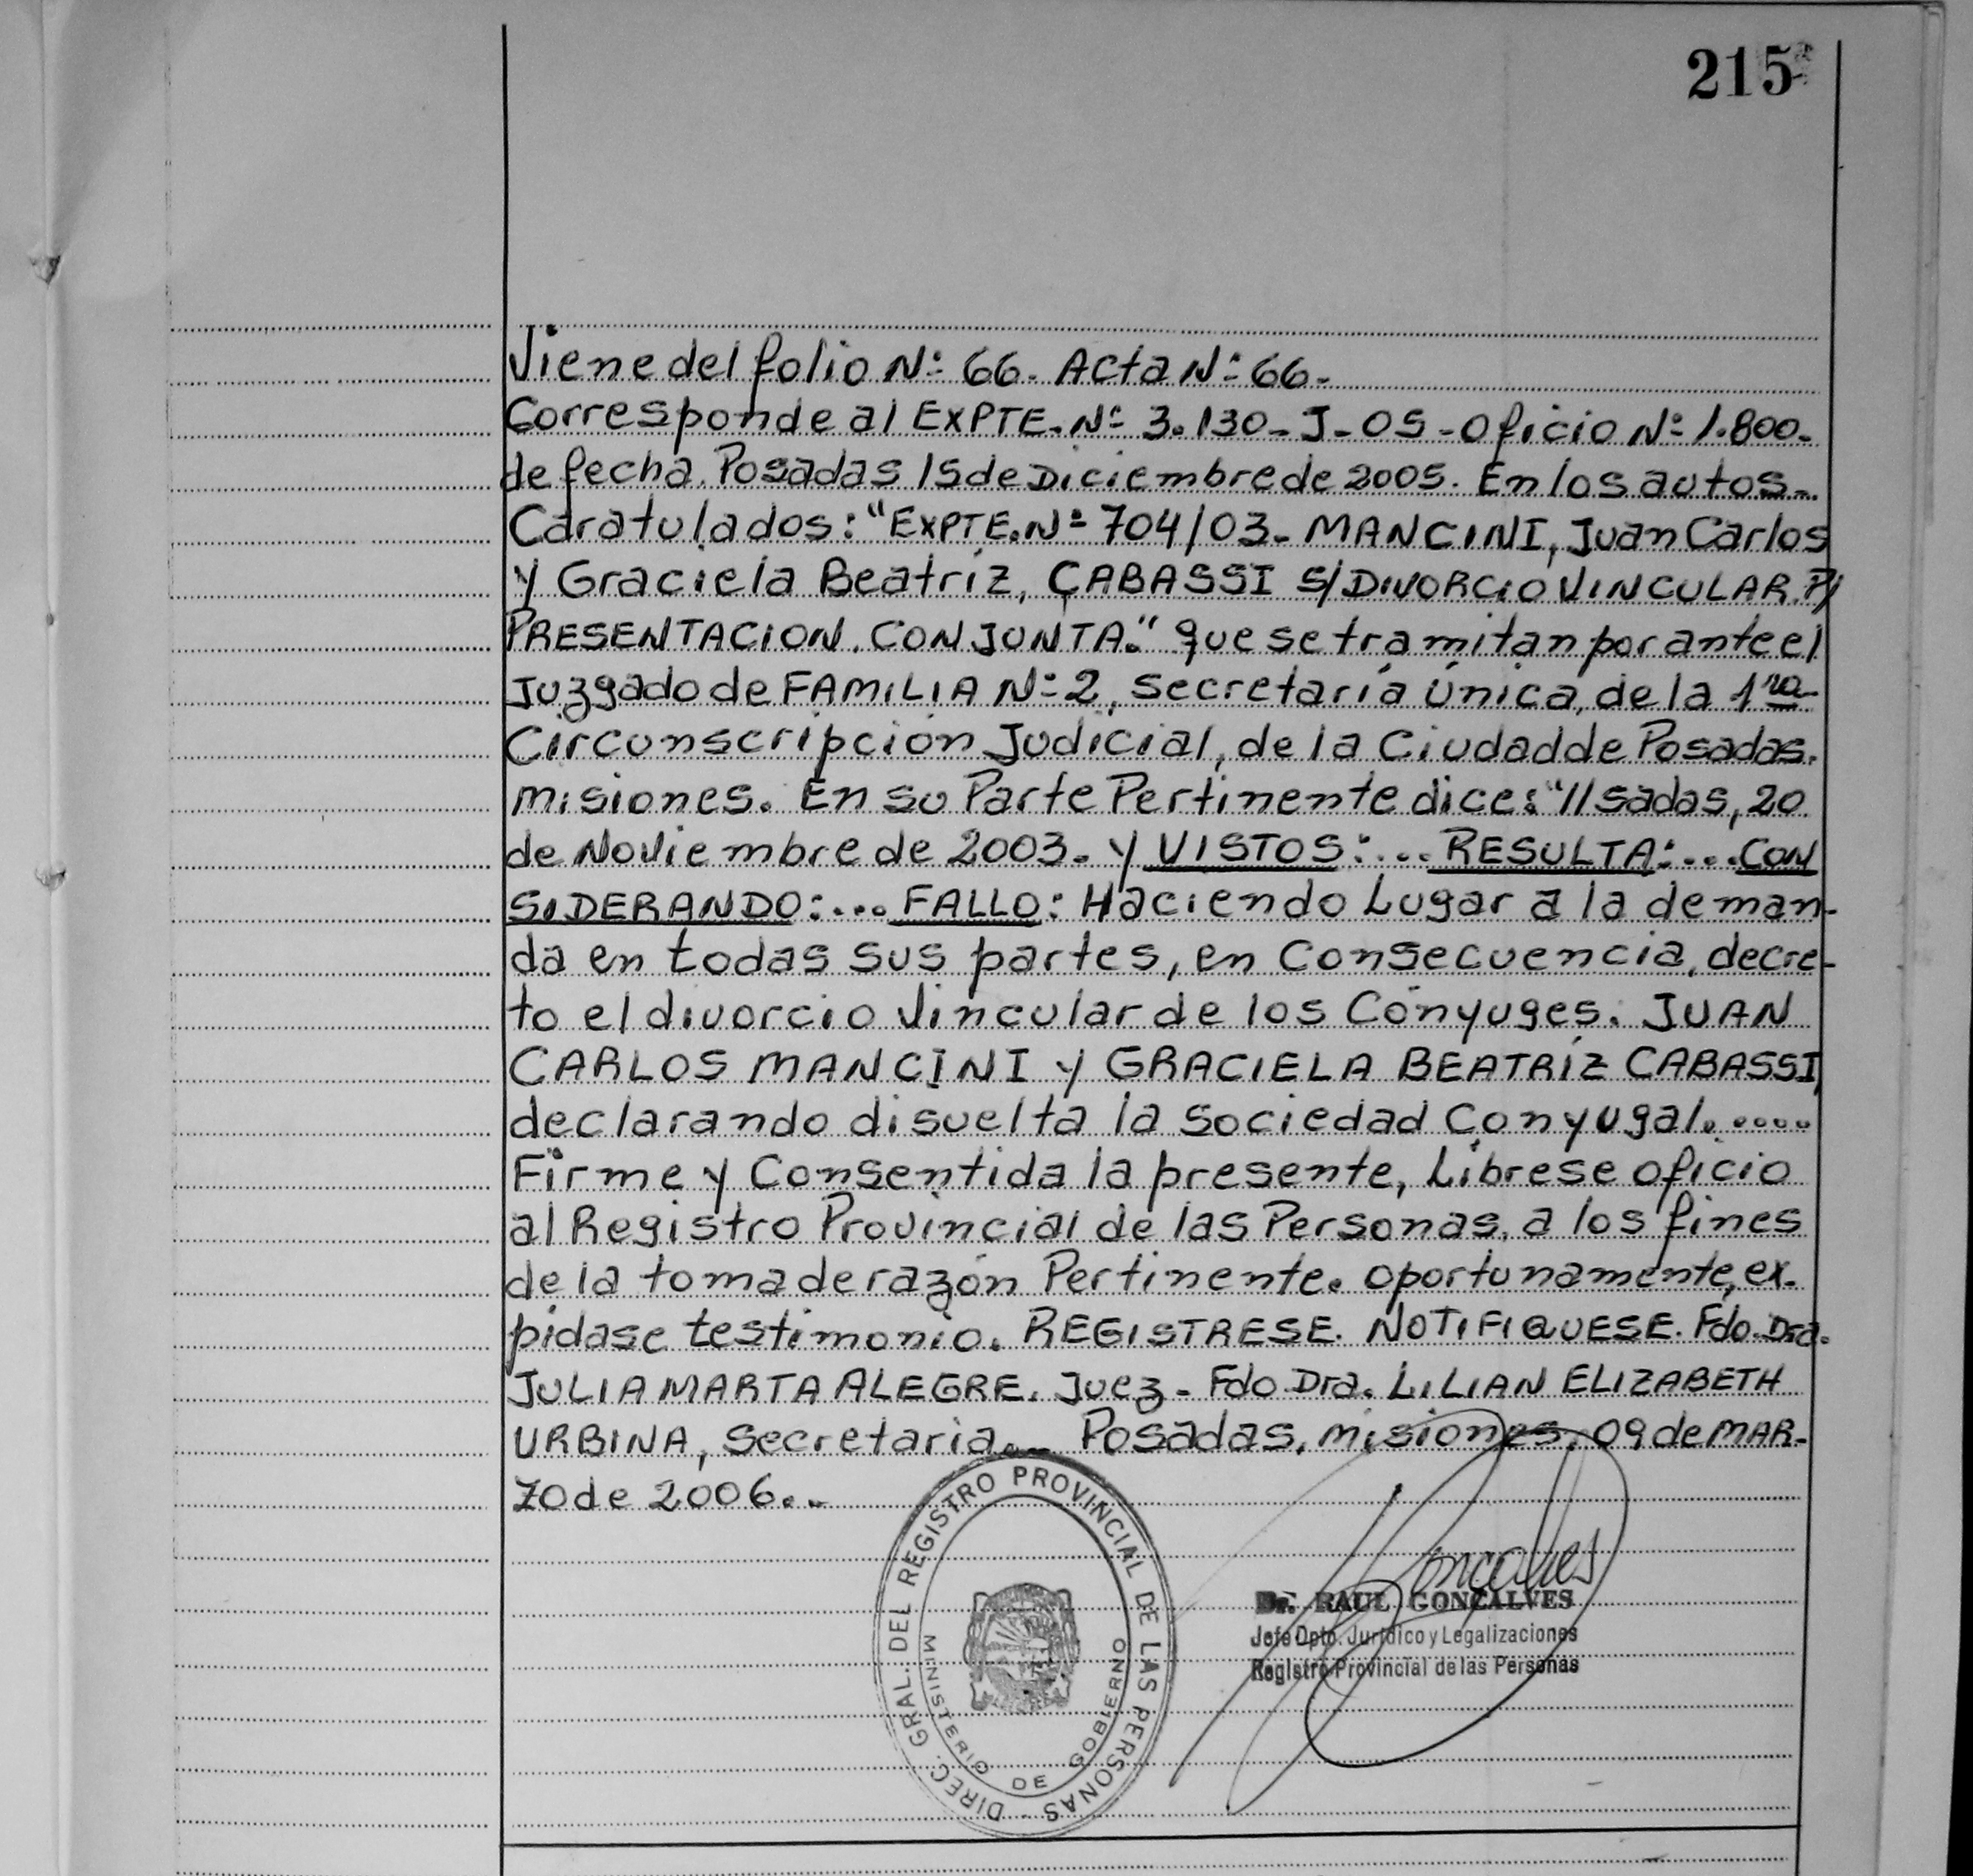 215
Viene del folio Nº 66. Acta Nº 66.
Corresponde al EXPTE. Nº 3.130-J-05-Oficio Nº 1.800-
de fecha. Posadas 15 de Diciembre de 2005. En los autos-
Caratulados: "EXPTE. Nº 704/03- MANCINI, Juan Carlos
y Graciela Beatríz, CABASSI S/DIVORCIO VINCULAR. P/
PRESENTACION. CONJUNTA." que se tramitan por ante el
Juzgado de FAMILIA Nº 2, Secretaría Única, de la 1ra
Circunscripción Judicial, de la Ciudad de Posadas.
Misiones. En su Parte Pertinente dice: "//sadas, 20
de Noviembre de 2003. y VISTOS:... RESULTA:... CON
SIDERANDO:... FALLO: Haciendo Lugar a la deman-
da en todas sus partes, en Consecuencia, decre-
to el divorcio Vincular de los Cónyuges. JUAN
CARLOS MANCINI y GRACIELA BEATRÍZ CABASSI,
declarando disuelta la Sociedad Conyugal.....
Firme y Consentida la presente, Líbrese oficio
al Registro Provincial de las Personas, a los fines
de la toma de razón Pertinente. Oportunamente, ex-
pidase testimonio. REGISTRESE. NOTIFIQUESE. Fdo. Dra.
JULIA MARTA ALEGRE. Juez- Fdo Dra. LILIAN ELIZABETH
URBINA, Secretaria.-- Posadas, Misiones, 09 de MAR-
ZO de 2006.-
DIREC. GRAL. DEL REGISTRO PROVINCIAL DE LAS PERSONAS -
MINISTERIO DE GOBIERNO
Gonçalves
Dr. RAUL GONCALVES
Jefe Dpto. Jurídico y Legalizaciones
Registro Provincial de las Personas